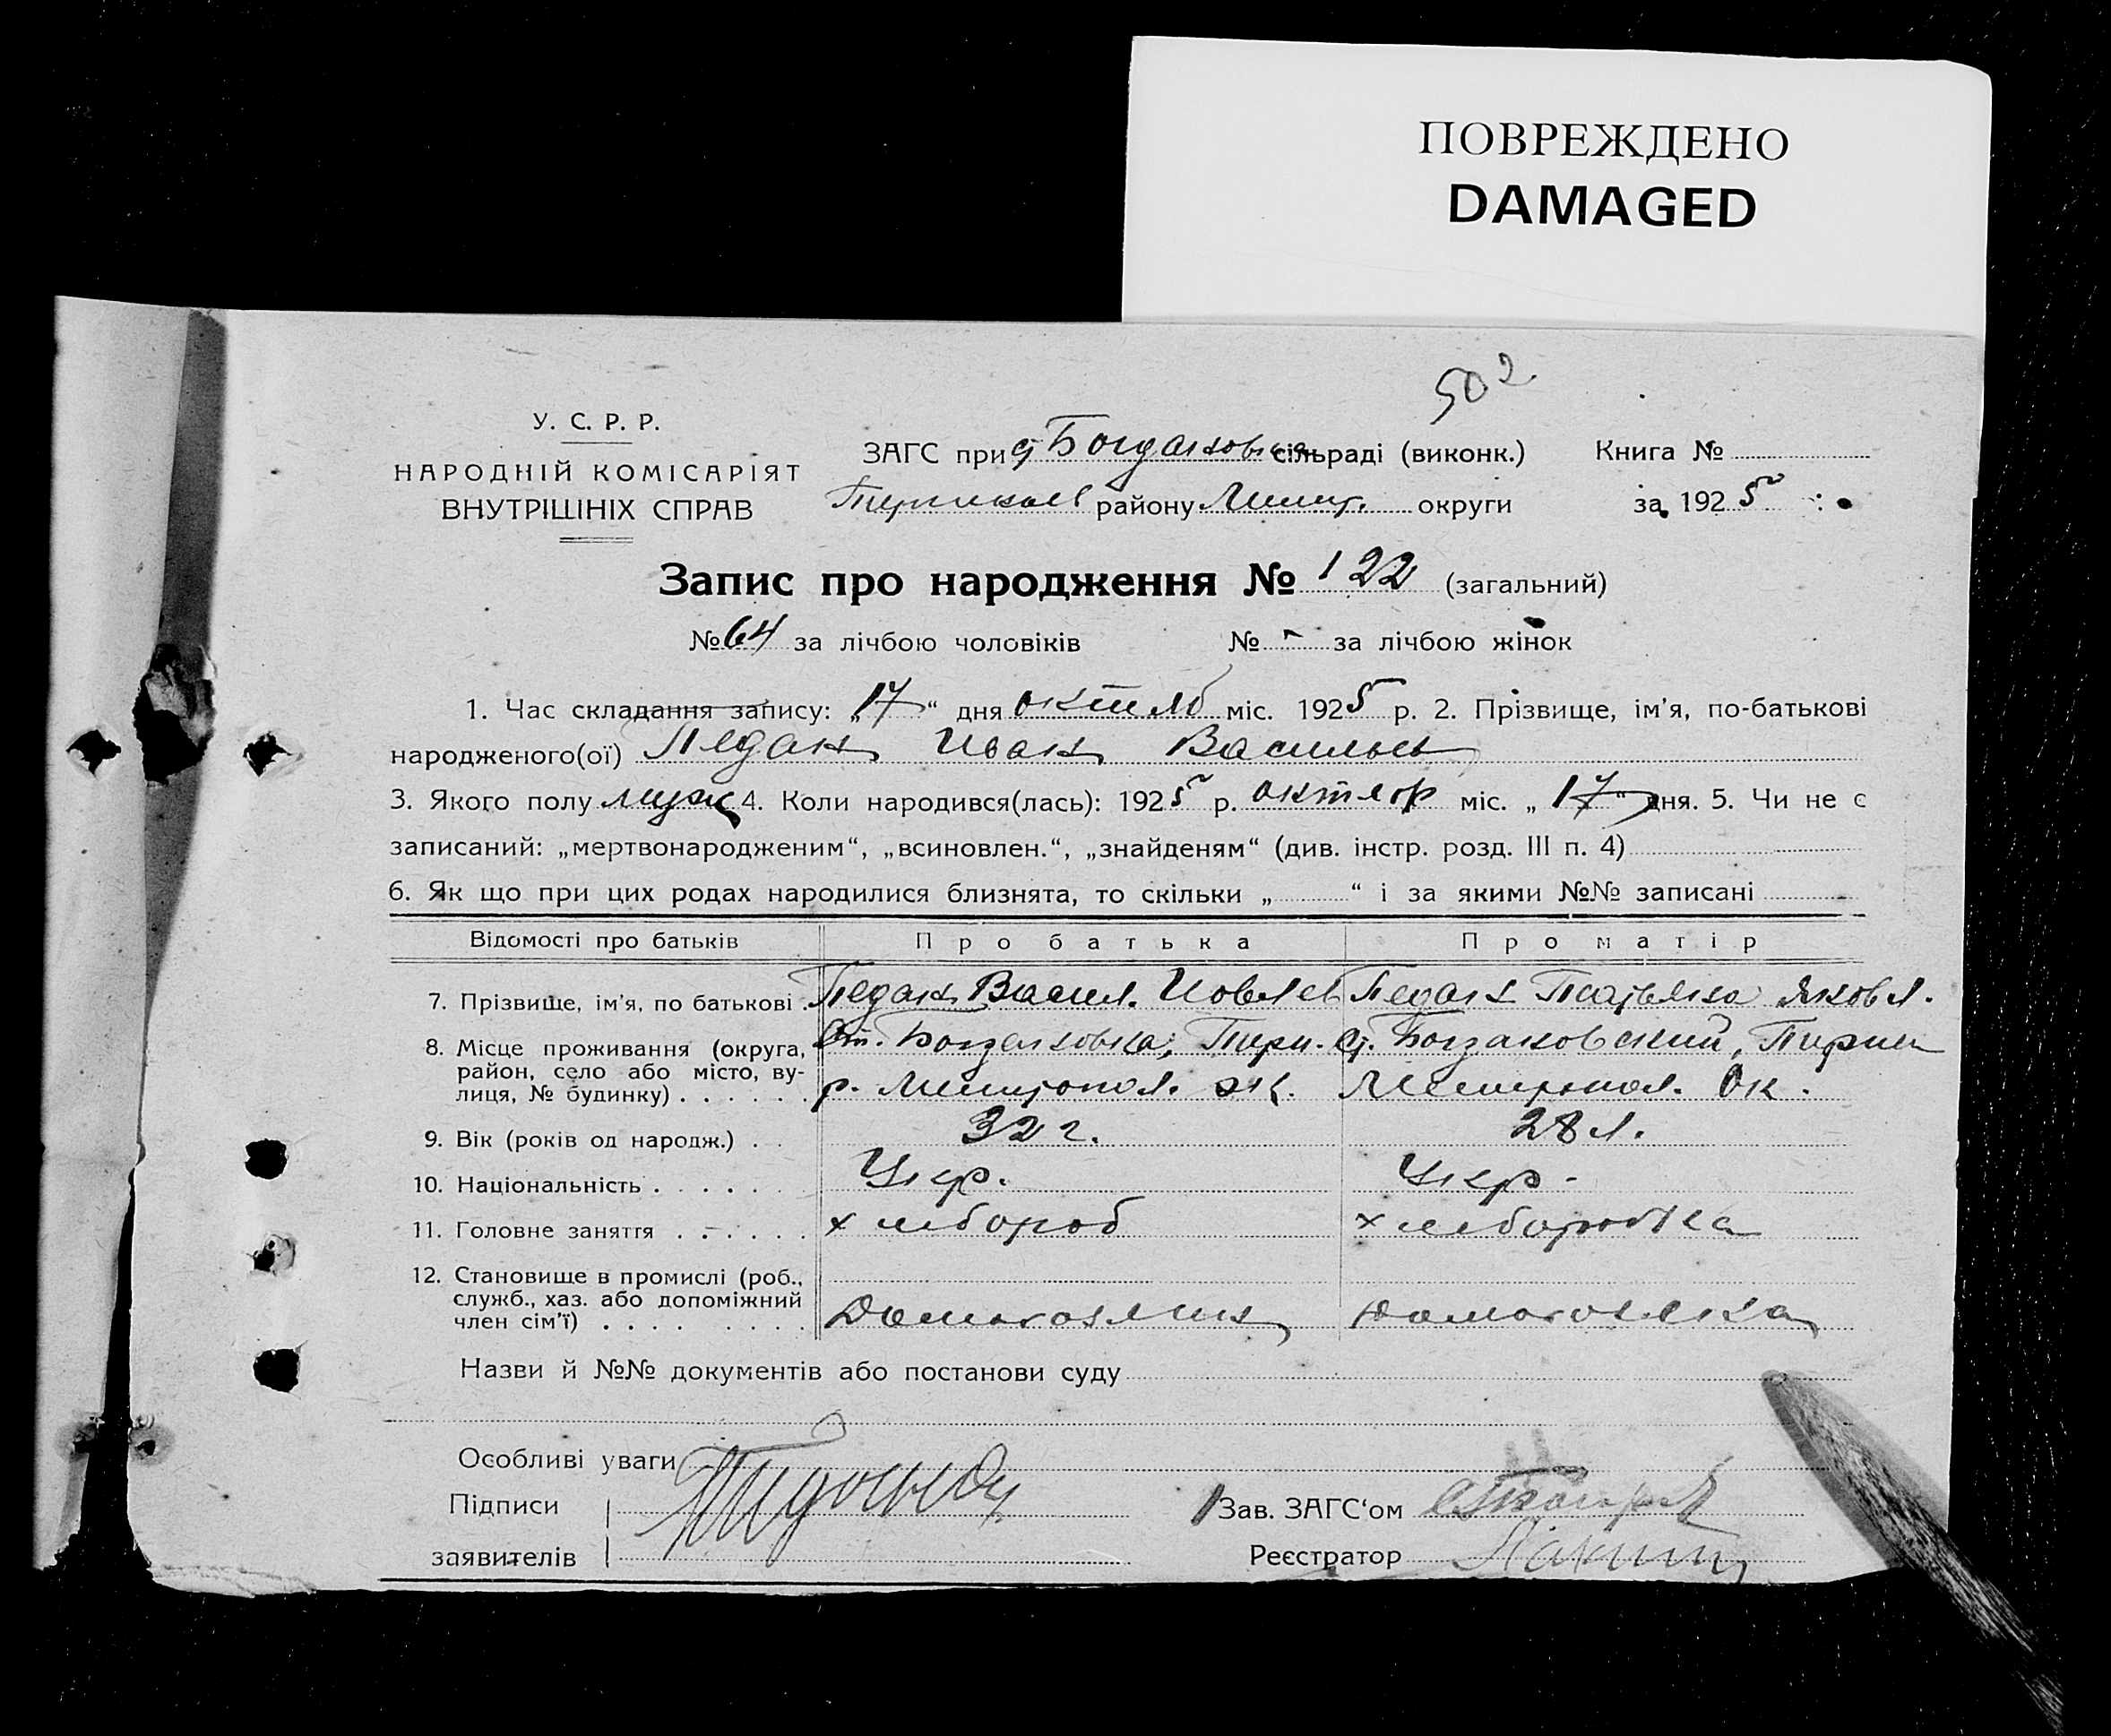 ПОВРЕЖДЕНО
DAMAGED
502
У. С. Р. Р.
НАРОДНІЙ КОМІСАРІЯТ
ВНУТРІШНІХ СПРАВ
ЗАГС при сільраді (виконк.)
району округи
Книга №
за 1925
Запис про народження № 122 (загальний)
№ 64 за лічбою чоловіків № - за лічбою жінок
1. Час складання запису: „17“ дня октяб міс. 1925 р. 2. Прізвище, ім’я, по-батькові
народженого(ої) Педан Иван Васильев
3. Якого полу муж 4. Коли народився(лась): 1925 р. октяр міс. „17“ дня. 5. Чи не є
записаний: „мертвонародженим“, „всиновлен.“, „знайденям“ (див. інстр. розд. III п. 4)
6. Як що при цих родах народилися близнята, то скільки „ “ і за якими №№ записані
Відомості про батьків Про батька Про матір
7. Прізвище, ім’я, по батькові . Педан Васил. Иовлев Педан Татьяна Яковл.
8. Місце проживання (округа, Богдановка, ст. Богдановский,
район, село або місто, ву-
лиця, № будинку) . . . . . . р. Мелитопол. ок. Мелитопол. Ок.
9. Вік (років од народж.) . . 32 г. 28 л.
10. Національність . . . . . Укр. Укр.
11. Головне заняття . . . . . . хлебороб хлеборобка
12. Становище в промислі (роб.,
служб., хаз. або допоміжний
член сім’ї) . . . . . . . . Домохозяин домохозяйка
Назви й №№ документів або постанови суду
Особливі уваги
Підписи
заявителів
Зав. ЗАГС‘ом
Реєстратор